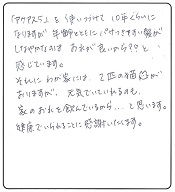 「アクアス5」を使いつづけて 10年くらいに
なりますが 年齢とともにパサつきやすい髪が
しなやかなのは おれが良いから?? と
感じています。
それに わが家には 2匹の猫が
おりますが、元気でいてくれるのも、
家のお水を飲んでいるから… と思います。
健康でいられることに感謝いたします。